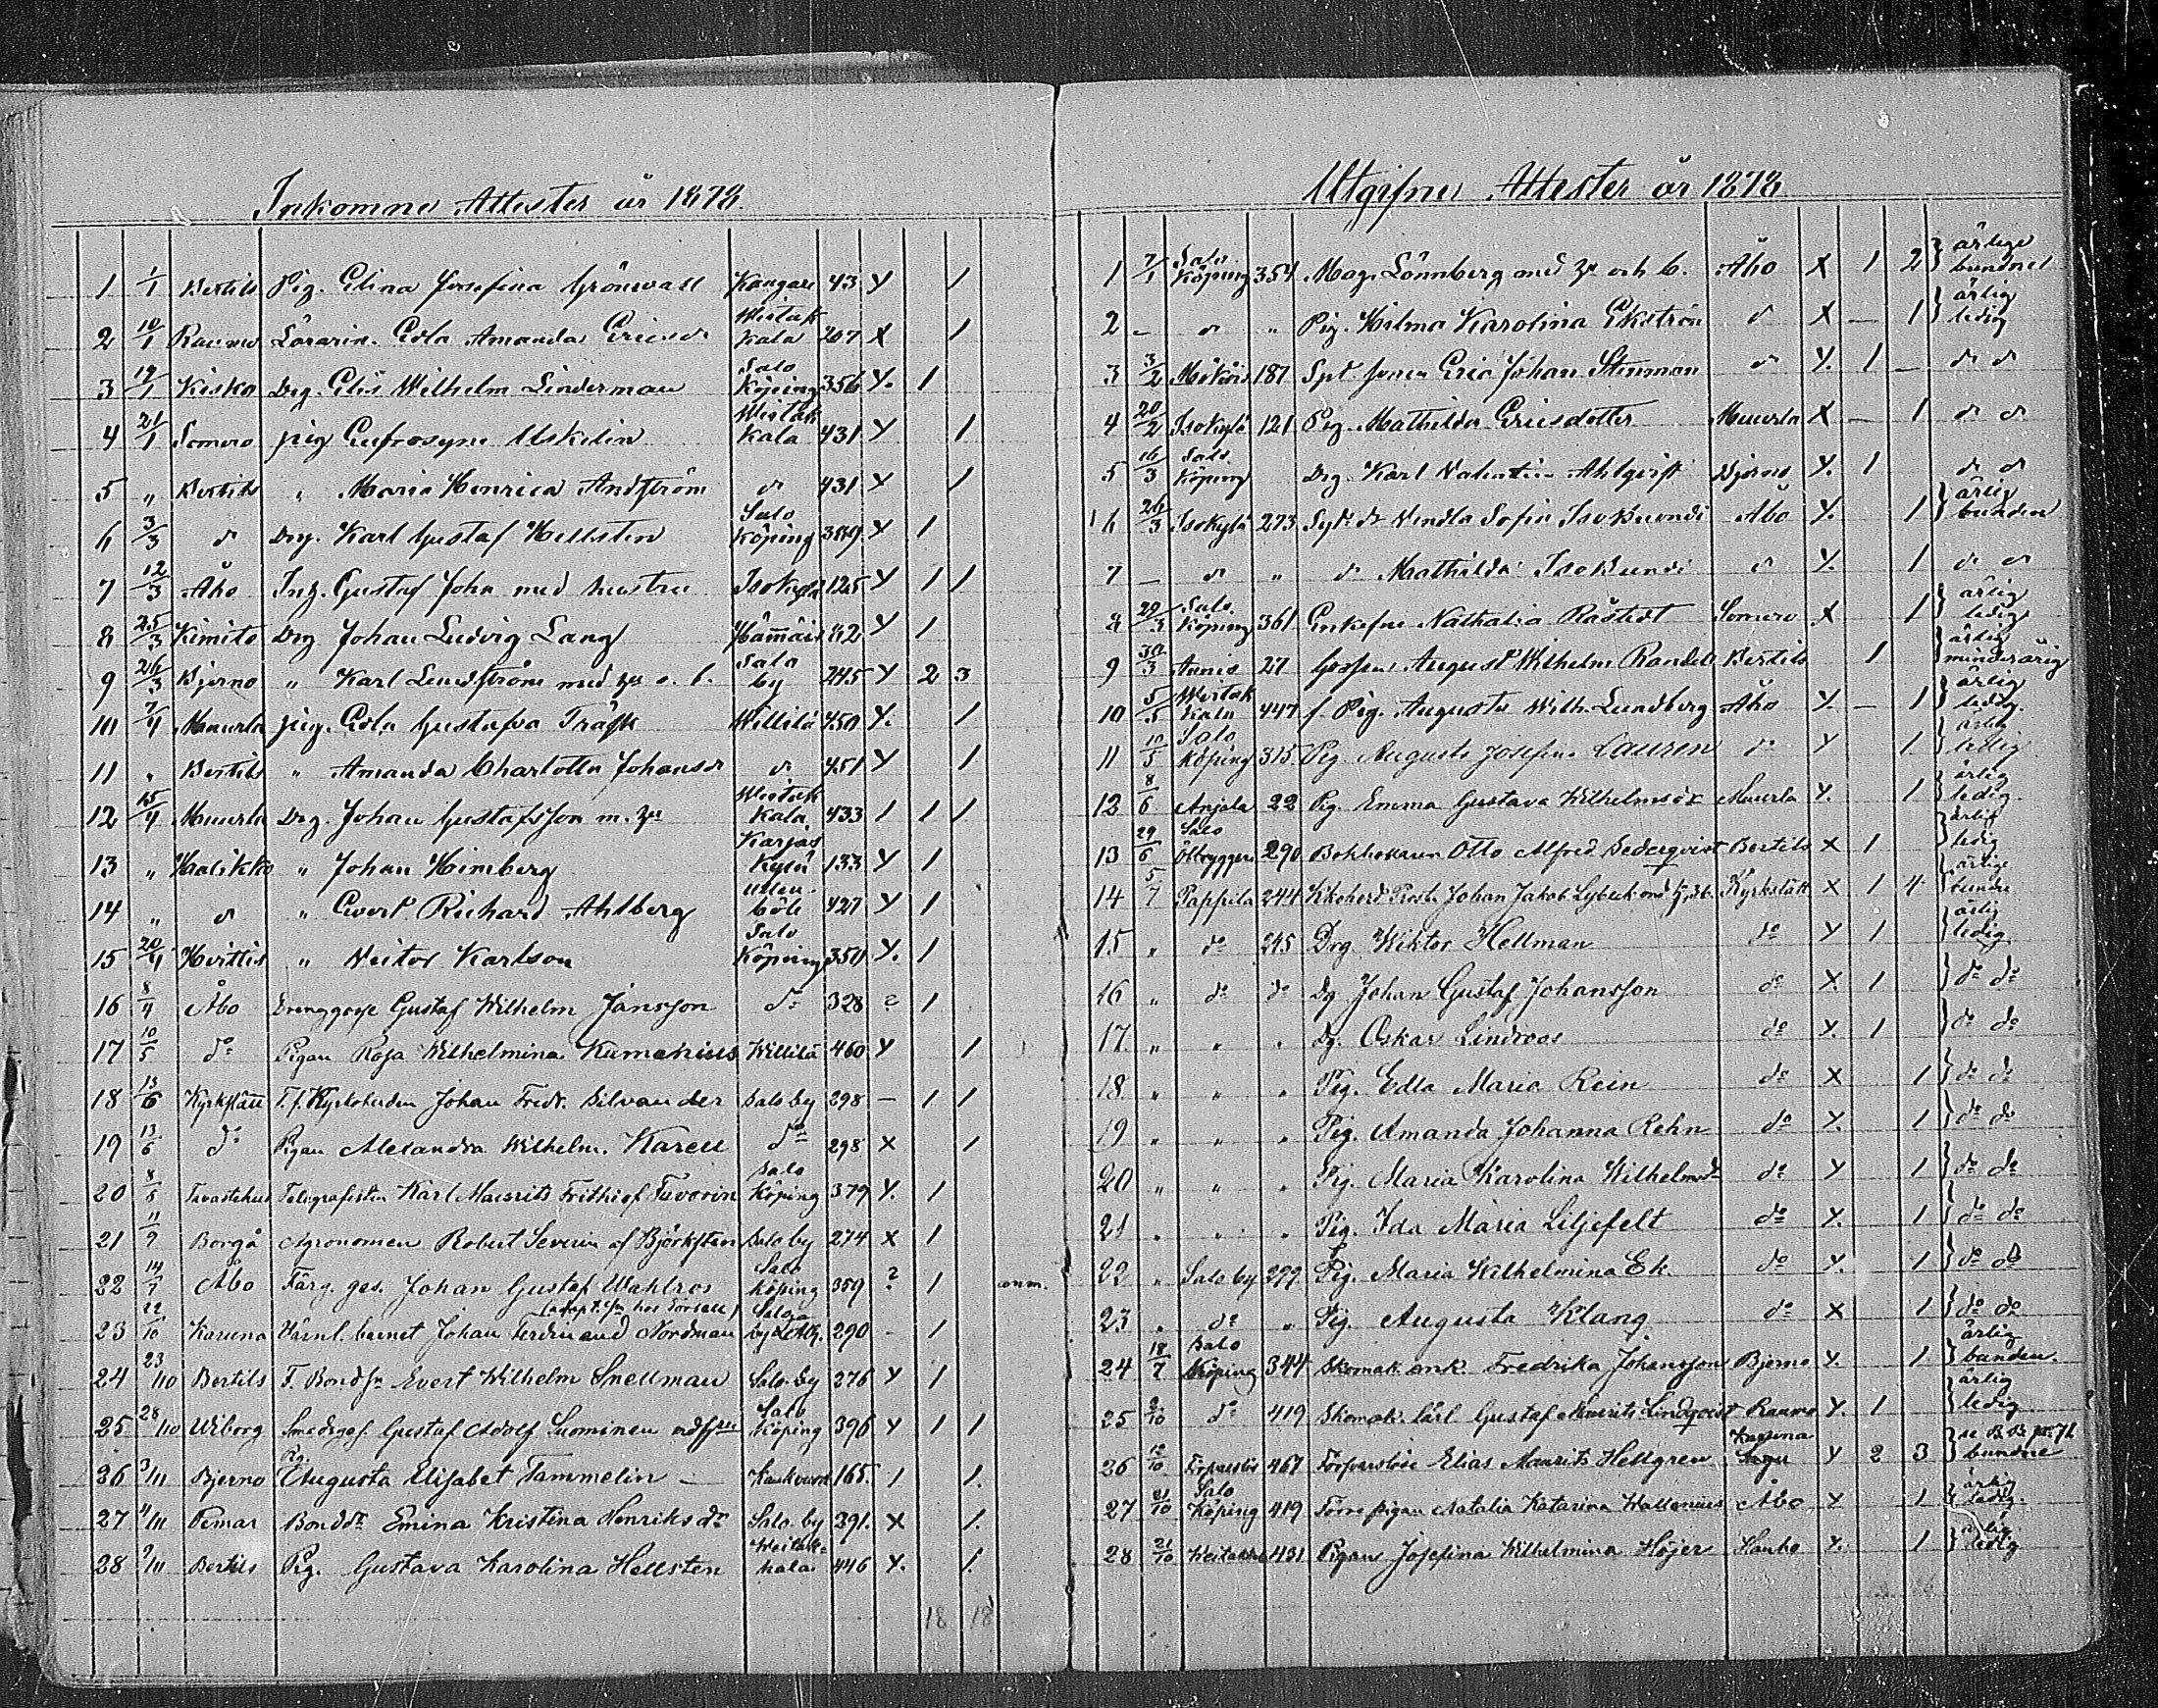 Inkomne Attester år 1878.
1 1/1 Bertils Pig. Elina Josefina Grönwall Kangare 43 Y 1
2 10/1 Raumo Lärarin. Edla Amanda Ericsdr Wietakkala 207 X 1
3 19/1 Kisko Drg. Elis Wilhelm Linderman Salo Köping 356 Y. 1
4 21/1 Somero pig Eufrosyne Uskelin Wietakkala 431 Y 1
5 " Bertils " Maria Henrica Andström do 431 Y 1
6 3/3 do Drg. Karl Gustaf Hellsten Salo Köping 389 Y 1
7 12/3 Åbo Inh. Gustaf John med hustru Isokylä 125 Y 1 1
8 25/3 Kimito Drg Johan Ludvig Lang 82 Y 1
9 26/3 Bjerno " Karl Lundström med hu o. b. Salo by 245 Y 2 3
10 7/4 Muurla pig. Edla Gustafva Träsk Willilä 450 Y. 1
11 " Bertils " Amanda Charlotta Johansdr do 451 Y 1
12 15/4 Muurla Drg. Johan Gustafsson m. hu Wietakkala 433 1 1 1
13 " Halikko " Johan Himberg Karjaskylä 133 Y 1
14 " do " Evert Richard Ahlberg 427 Y 1
15 20/4 Hvittis " Viktor Karlson Salo Köping 354 Y. 1
16 8/4 Åbo Drenggosse Gustaf Wilhelm Jansson do 328 ? 1
17 10/5 do Pigan Rosa Wilhelmina Kumenius Willilä 460 Y 1
18 13/6 Kyrkslätt T.f. Kyrkoherden Johan Fredr. Silvander Salo by 298 – 1 1
19 13/6 do Pigan Alexandra Wilhelm. Karell do 298 X 1
20 8/6 Tavastehus Telegrafisten Karl Mauritz Frithiof Tuvorin Salo Köping 379 Y. 1
21 11/7 Borgå Agronomen Robert Severin af Björksten Salo by 274 X 1
22 14/7 Åbo Färg. ges. Johan Gustaf Wahlros Salo Köping 359 ? 1 anm.
23 22/10 Karuna Värnl. barnet Johan Ferdinand Nordman 290 - 1
24 23/10 Bertils F. Bondsn Evert Wilhelm Snellman Salo by 276 Y 1
25 28/10 Wiborg Smedsges. Gustaf Adolf Suominen md hu Salo Köping 396 Y 1 1
26 3/11 Bjerno Pg. Augusta Elisabet Tammelin – 165. 1 1.
27 4/11 Pemar Bonddr Emina Kristina Henriksdr Salo by 291. X 1.
28 9/11 Bertils Pig. Gustava Karolina Hellsten Weitakkala 446 Y. 1.
18 18
Utgifne Attester år 1878
1 7/1 Salo Köping 354 Mag. Lönnberg med hu och b. Åbo X 1 2 ärlige bundne
2 – do " Pig. Hilma Karolina Ekström do X – 1 ärlig ledig
3 3/2 Mökös 187 Spt sonen Eric Johan Stenman do Y. 1 – do do
4 20/2 Isokylä 121 Pig. Mathilda Ericsdotter Muurla X – 1 do do
5 16/3 Salo Köping Drg. Karl Valentin Ahlqvist Bjerno Y. 1 do do
6 26/3 Isokylä 273 Sytdr Vendla Sofia Iso Buondi Åbo Y. 1 ärlig bunden
7 – do " do Mathilda Iso Buondi do Y. 1 do do
8 29/3 Salo Köping 361 Enkefru Nathalia Råstedt Somero X 1 ärlig ledig
9 30/3 Annis 27 Gossen August Wilhelm Randell Bertils 1 ärlig minderårig
10 5/5 Wietakkala 447 f. Pig. Augusta Wilh. Lundberg Åbo Y. – 1 ärlig ledig.
11 10/5 Salo Köping 315 Pig Augusta Josefina Lauren do Y 1 ärlig ledig
12 8/6 Anjala 22 Pig. Emma Gustava Wilhelmsdr Muurla Y. 1 ärlig ledig.
13 29/6 Salo Ölbryggeri 290 Bokhållaren Otto Alfred Sederqvist Bertils X 1 ärlig ledig
14 5/7 Pappila 244 Kkoherd. Prost. Johan Jakob Lybeck md hu, 3 b. Kyrkslätt X 1 4 ärlige bundne
15 " do 245 Drg Wiktor Hellman do Y 1 ärlig ledig.
16 " do do Dg Johan Gustaf Johansson do X 1 do do
17 " " " Dg. Oskar Lindroos do Y. 1 do do
18 " " " Pig. Edla Maria Rein do X 1 do do
19 " " " Pig. Amanda Johanna Rehn do Y. 1 do do
20 " " " Pig. Maria Karolina Wilhelmsdr do Y 1 do do
21 " " " Pig. Ida Maria Liljefelt do Y. 1 do do
22 " Salo by 299 Pig. Maria Wilhelmina Ek. do Y. 1 do do
23 " do " Pig. Augusta Klang do X 1 do do
24 18/7 Salo Köping 344 Skomak. enk. Fredrika Johansson Bjerno Y. 1 ärlig bunden.
25 2/10 do 419 Skomak. lärl Gustaf Mauritz Lindqvist Raumo Y. 1 ärlig ledig.
26 12/10 Förpaslöse 467 Förpaslöse Elias Mauritz Hellgren Karuna Sagu Y 2 3 bundne
27 21/10 Salo Köping 419 Förre pigan Natalia Katarina Wallenius Åbo Y 1 ärlig ledig.
28 21/10 Weitakkala 431 Pigan Josefina Wilhelmina Höjer Hanko Y. 1 ärlig ledig